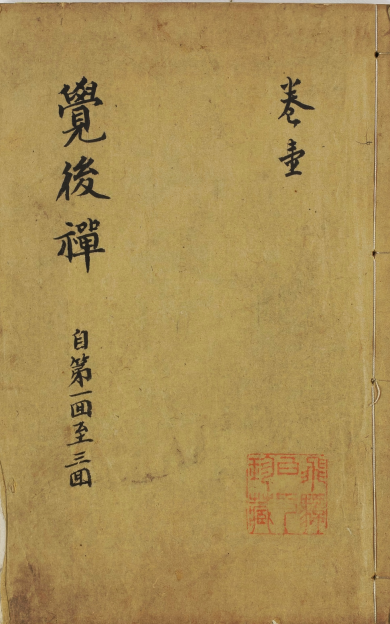 卷壹
覺後禪
自第一回至三回